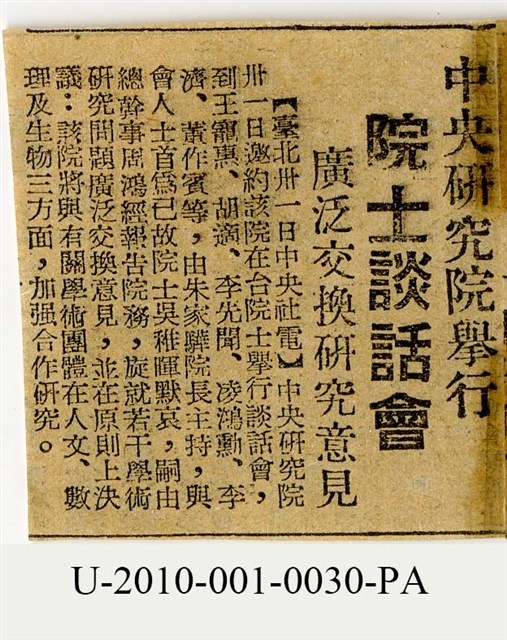 中央研究院舉行
院士談話會
廣泛交換研究意見
【臺北卅一日中央社電】中央研究院
卅一日邀約該院在台院士舉行談話會，
到王寵惠、胡適、李先聞、凌鴻勳、李
濟、董作賓等，由朱家驊院長主持，與
會人士首為已故院士吳稚暉默哀，嗣由
總幹事周鴻經報告院務，旋就若干學術
研究問題廣泛交換意見，並在原則上決
議：該院將與有關學術團體在人文、數
理及生物三方面，加强合作研究。
U-2010-001-0030-PA